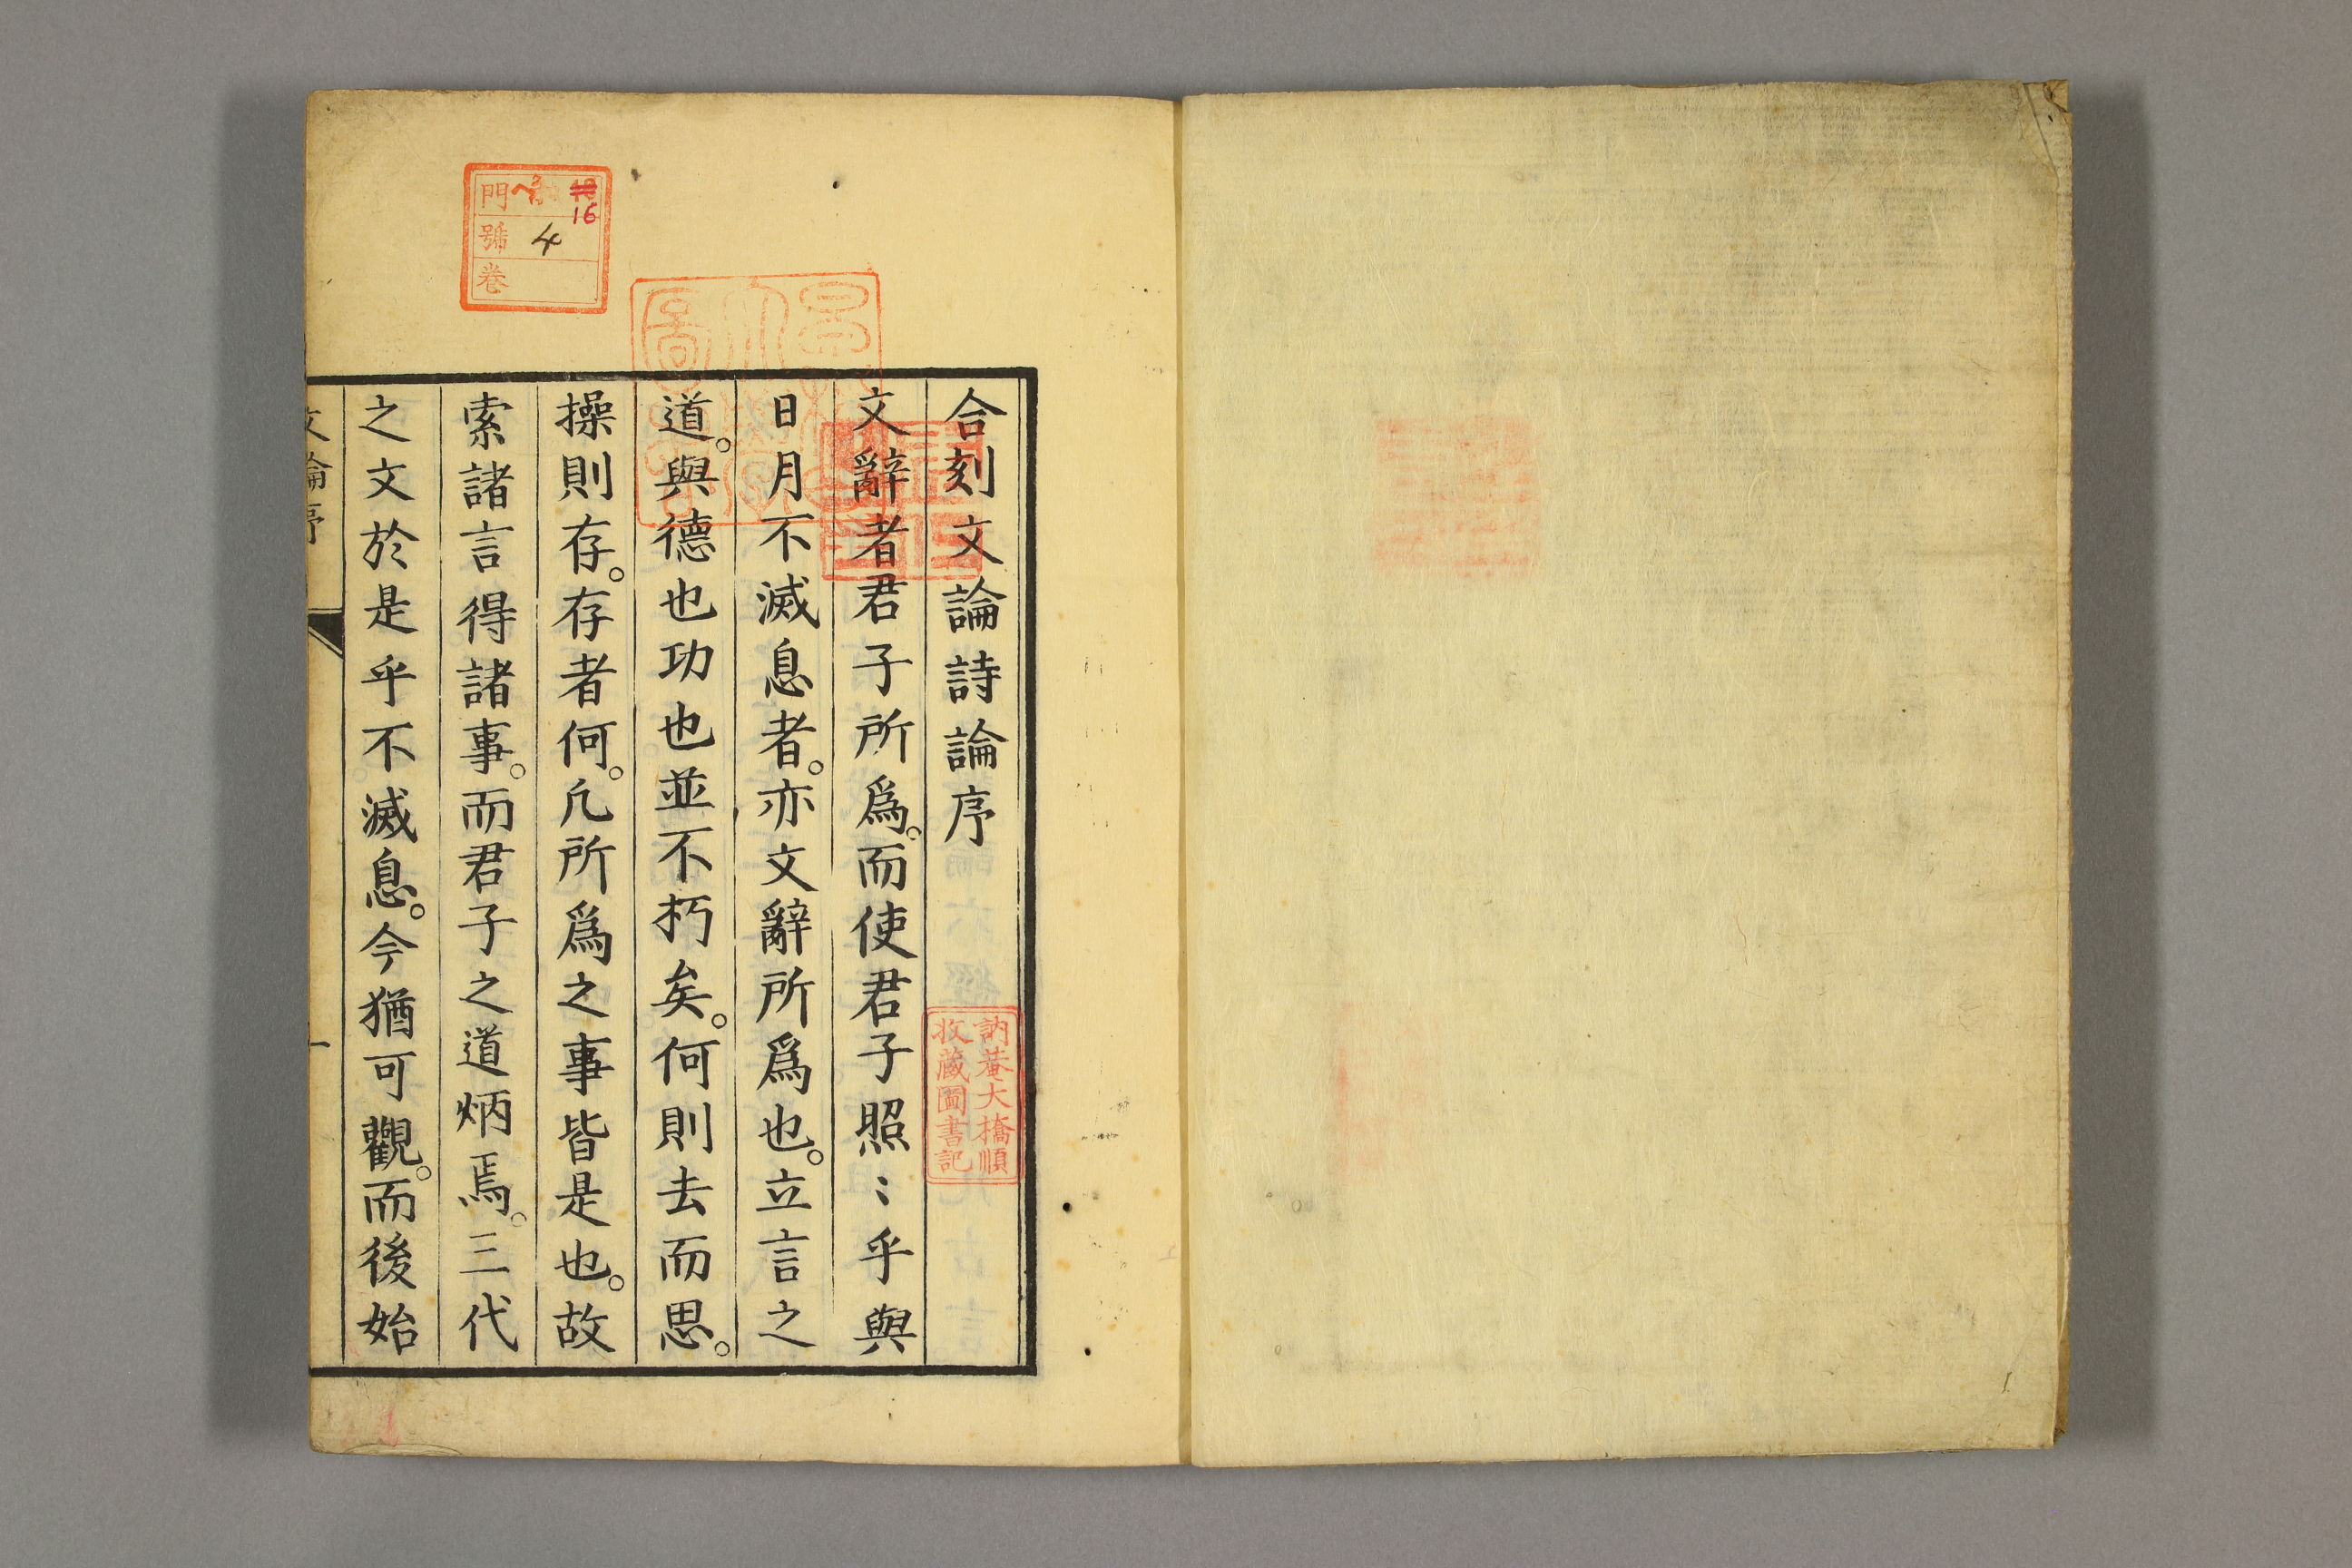 合刻文論詩論序
文辭者君子所爲。而使君子照〻乎與
日月不滅息者。亦文辭所爲也。立言之
道。與德也功也並不朽矣。何則去而思。
操則存。存者何。凢所爲之事皆是也。故
索諸言得諸事。而君子之道炳焉。三代
之文於是乎不滅息。今猶可觀。而後始
文論序
一
訥菴大橋順
收藏圖書記
門
16
號 4
卷